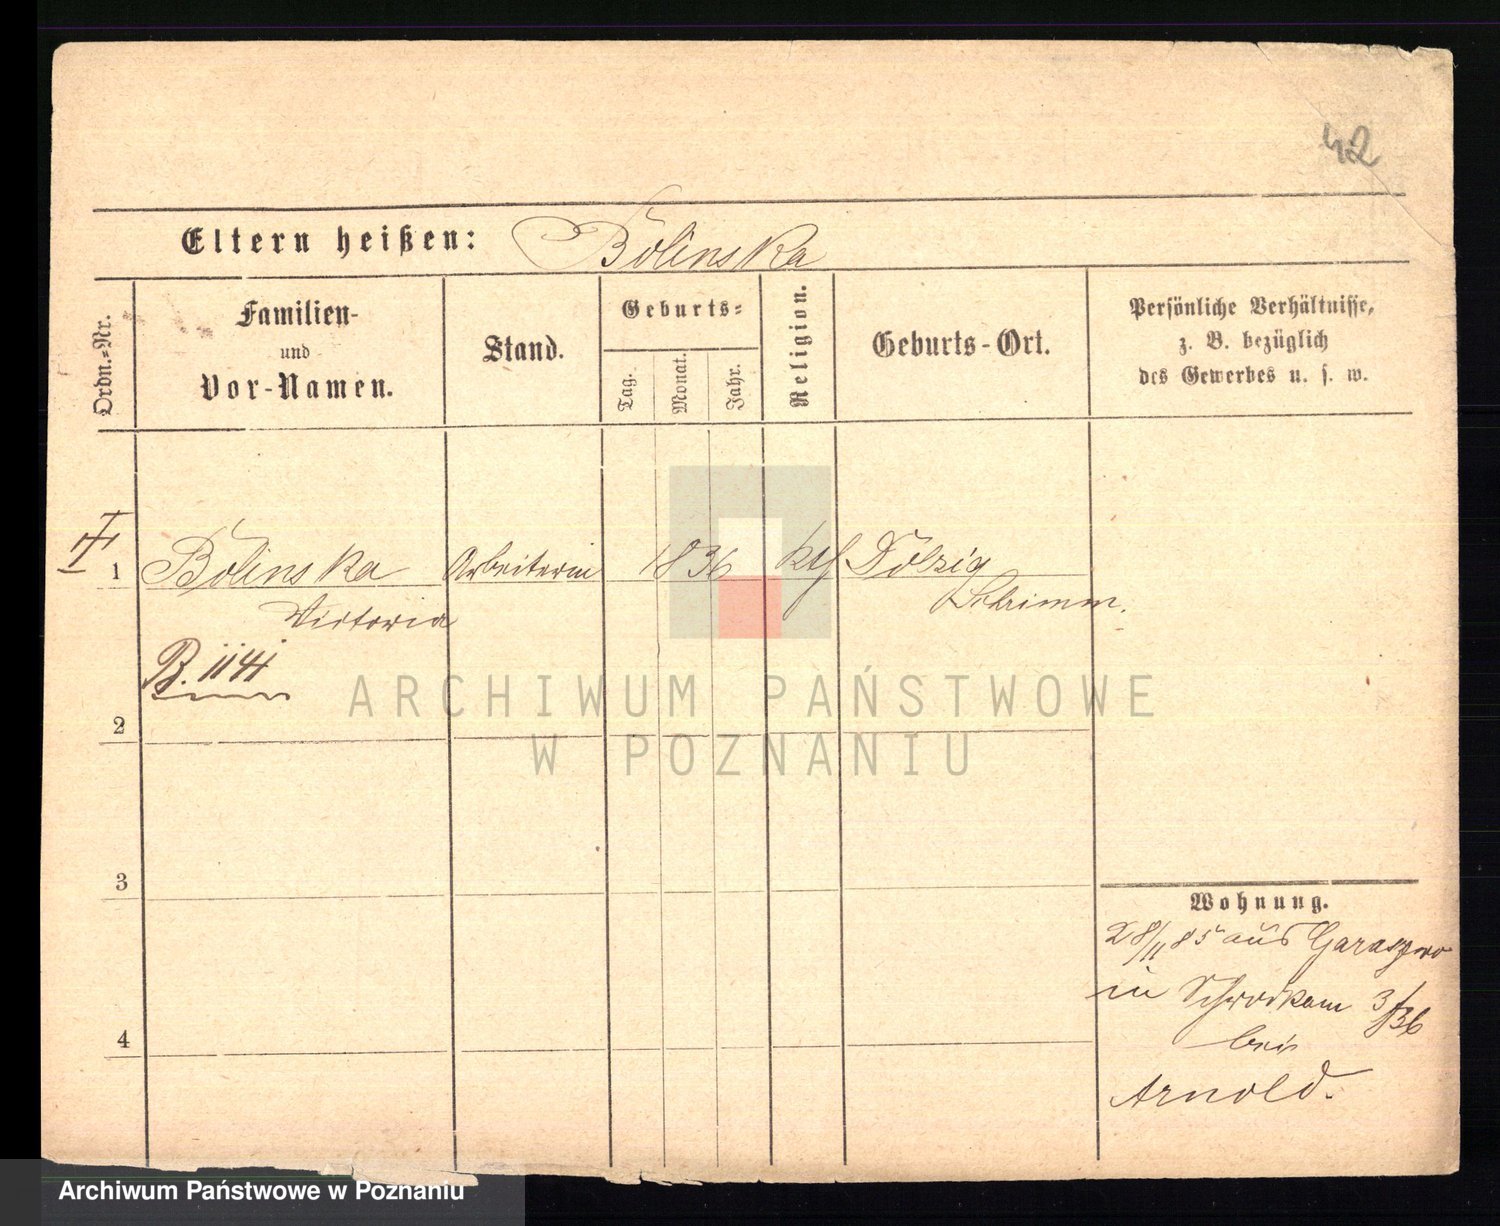 42
Eltern heißen: Bolinska
Ordn.=Nr.
Familien-
und
Vor-Namen.
Stand.
Geburts=
Tag.
Monat.
Jahr.
Religion.
Geburts-Ort.
Persönliche Verhältnisse,
z. B. bezüglich
des Gewerbes u. s. w.
1 Bolinska Arbeiterin 1836 kth Dolzig
Victoria Schrimm.
B. 1141
ARCHIWUM PAŃSTWOWE
W POZNANIU
2
3
4
Wohnung.
28/11 85 aus
in
bei
Arnold.
Archiwum Państwowe w Poznaniu